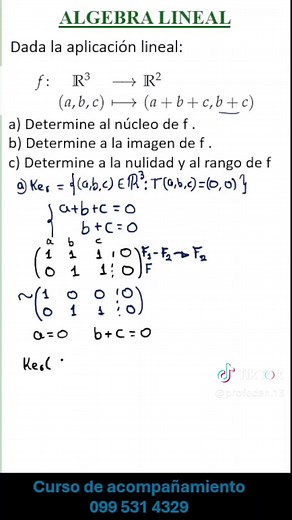 ALGEBRA LINEAL
Dada la aplicación lineal:
f: ℝ³ ⟶ ℝ²
(a, b, c) ⟼ (a + b + c, b + c)
a) Determine al núcleo de f .
b) Determine a la imagen de f .
c) Determine a la nulidad y al rango de f
a) Kerf = {(a,b,c) ∈ ℝ³: T(a,b,c) = (0,0)}
{ a+b+c = 0
b+c = 0
a b c
( 1 1 1 ¦ 0 ) F₁-F₂ → F₂
( 0 1 1 ¦ 0 ) F
~ ( 1 0 0 ¦ 0 )
( 0 1 1 ¦ 0 )
a=0 b+c=0
Kerf(
TikTok
Curso de acompañamiento
099 531 4329